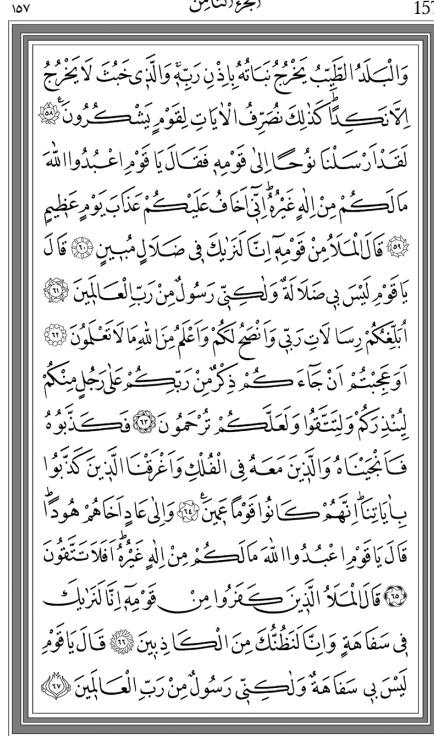 157 الجزء الثامن ١٥٧
وَالْبَلَدُ الطَّيِّبُ يَخْرُجُ نَبَاتُهُ بِاِذْنِ رَبِّهٖۚ وَالَّذٖي خَبُثَ لَا يَخْرُجُ
اِلَّا نَكِدًاؕ كَذٰلِكَ نُصَرِّفُ الْاٰيَاتِ لِقَوْمٍ يَشْكُرُونَࣖ ﴿٥٨﴾
لَقَدْ اَرْسَلْنَا نُوحًا اِلٰى قَوْمِهٖ فَقَالَ يَا قَوْمِ اعْبُدُوا اللّٰهَ
مَا لَكُمْ مِنْ اِلٰهٍ غَيْرُهُؕ اِنّٖٓي اَخَافُ عَلَيْكُمْ عَذَابَ يَوْمٍ عَظٖيمٍ
﴿٥٩﴾ قَالَ الْمَلَاُ مِنْ قَوْمِهٖٓ اِنَّا لَنَرٰيكَ فٖي ضَلَالٍ مُبٖينٍ ﴿٦٠﴾ قَالَ
يَا قَوْمِ لَيْسَ بٖي ضَلَالَةٌ وَلٰكِنّٖي رَسُولٌ مِنْ رَبِّ الْعَالَمٖينَ ﴿٦١﴾
اُبَلِّغُكُمْ رِسَالَاتِ رَبّٖي وَاَنْصَحُ لَكُمْ وَاَعْلَمُ مِنَ اللّٰهِ مَا لَا تَعْلَمُونَ ﴿٦٢﴾
اَوَعَجِبْتُمْ اَنْ جَٓاءَكُمْ ذِكْرٌ مِنْ رَبِّكُمْ عَلٰى رَجُلٍ مِنْكُمْ
لِيُنْذِرَكُمْ وَلِتَتَّقُوا وَلَعَلَّكُمْ تُرْحَمُونَ ﴿٦٣﴾ فَكَذَّبُوهُ
فَاَنْجَيْنَاهُ وَالَّذٖينَ مَعَهُ فِي الْفُلْكِ وَاَغْرَقْنَا الَّذٖينَ كَذَّبُوا
بِاٰيَاتِنَاؕ اِنَّهُمْ كَانُوا قَوْمًا عَمٖينَࣖ ﴿٦٤﴾ وَاِلٰى عَادٍ اَخَاهُمْ هُودًاؕ
قَالَ يَا قَوْمِ اعْبُدُوا اللّٰهَ مَا لَكُمْ مِنْ اِلٰهٍ غَيْرُهُؕ اَفَلَا تَتَّقُونَ
﴿٦٥﴾ قَالَ الْمَلَاُ الَّذٖينَ كَفَرُوا مِنْ قَوْمِهٖٓ اِنَّا لَنَرٰيكَ
فٖي سَفَاهَةٍ وَاِنَّا لَنَظُنُّكَ مِنَ الْكَاذِبٖينَ ﴿٦٦﴾ قَالَ يَا قَوْمِ
لَيْسَ بٖي سَفَاهَةٌ وَلٰكِنّٖي رَسُولٌ مِنْ رَبِّ الْعَالَمٖينَ ﴿٦٧﴾